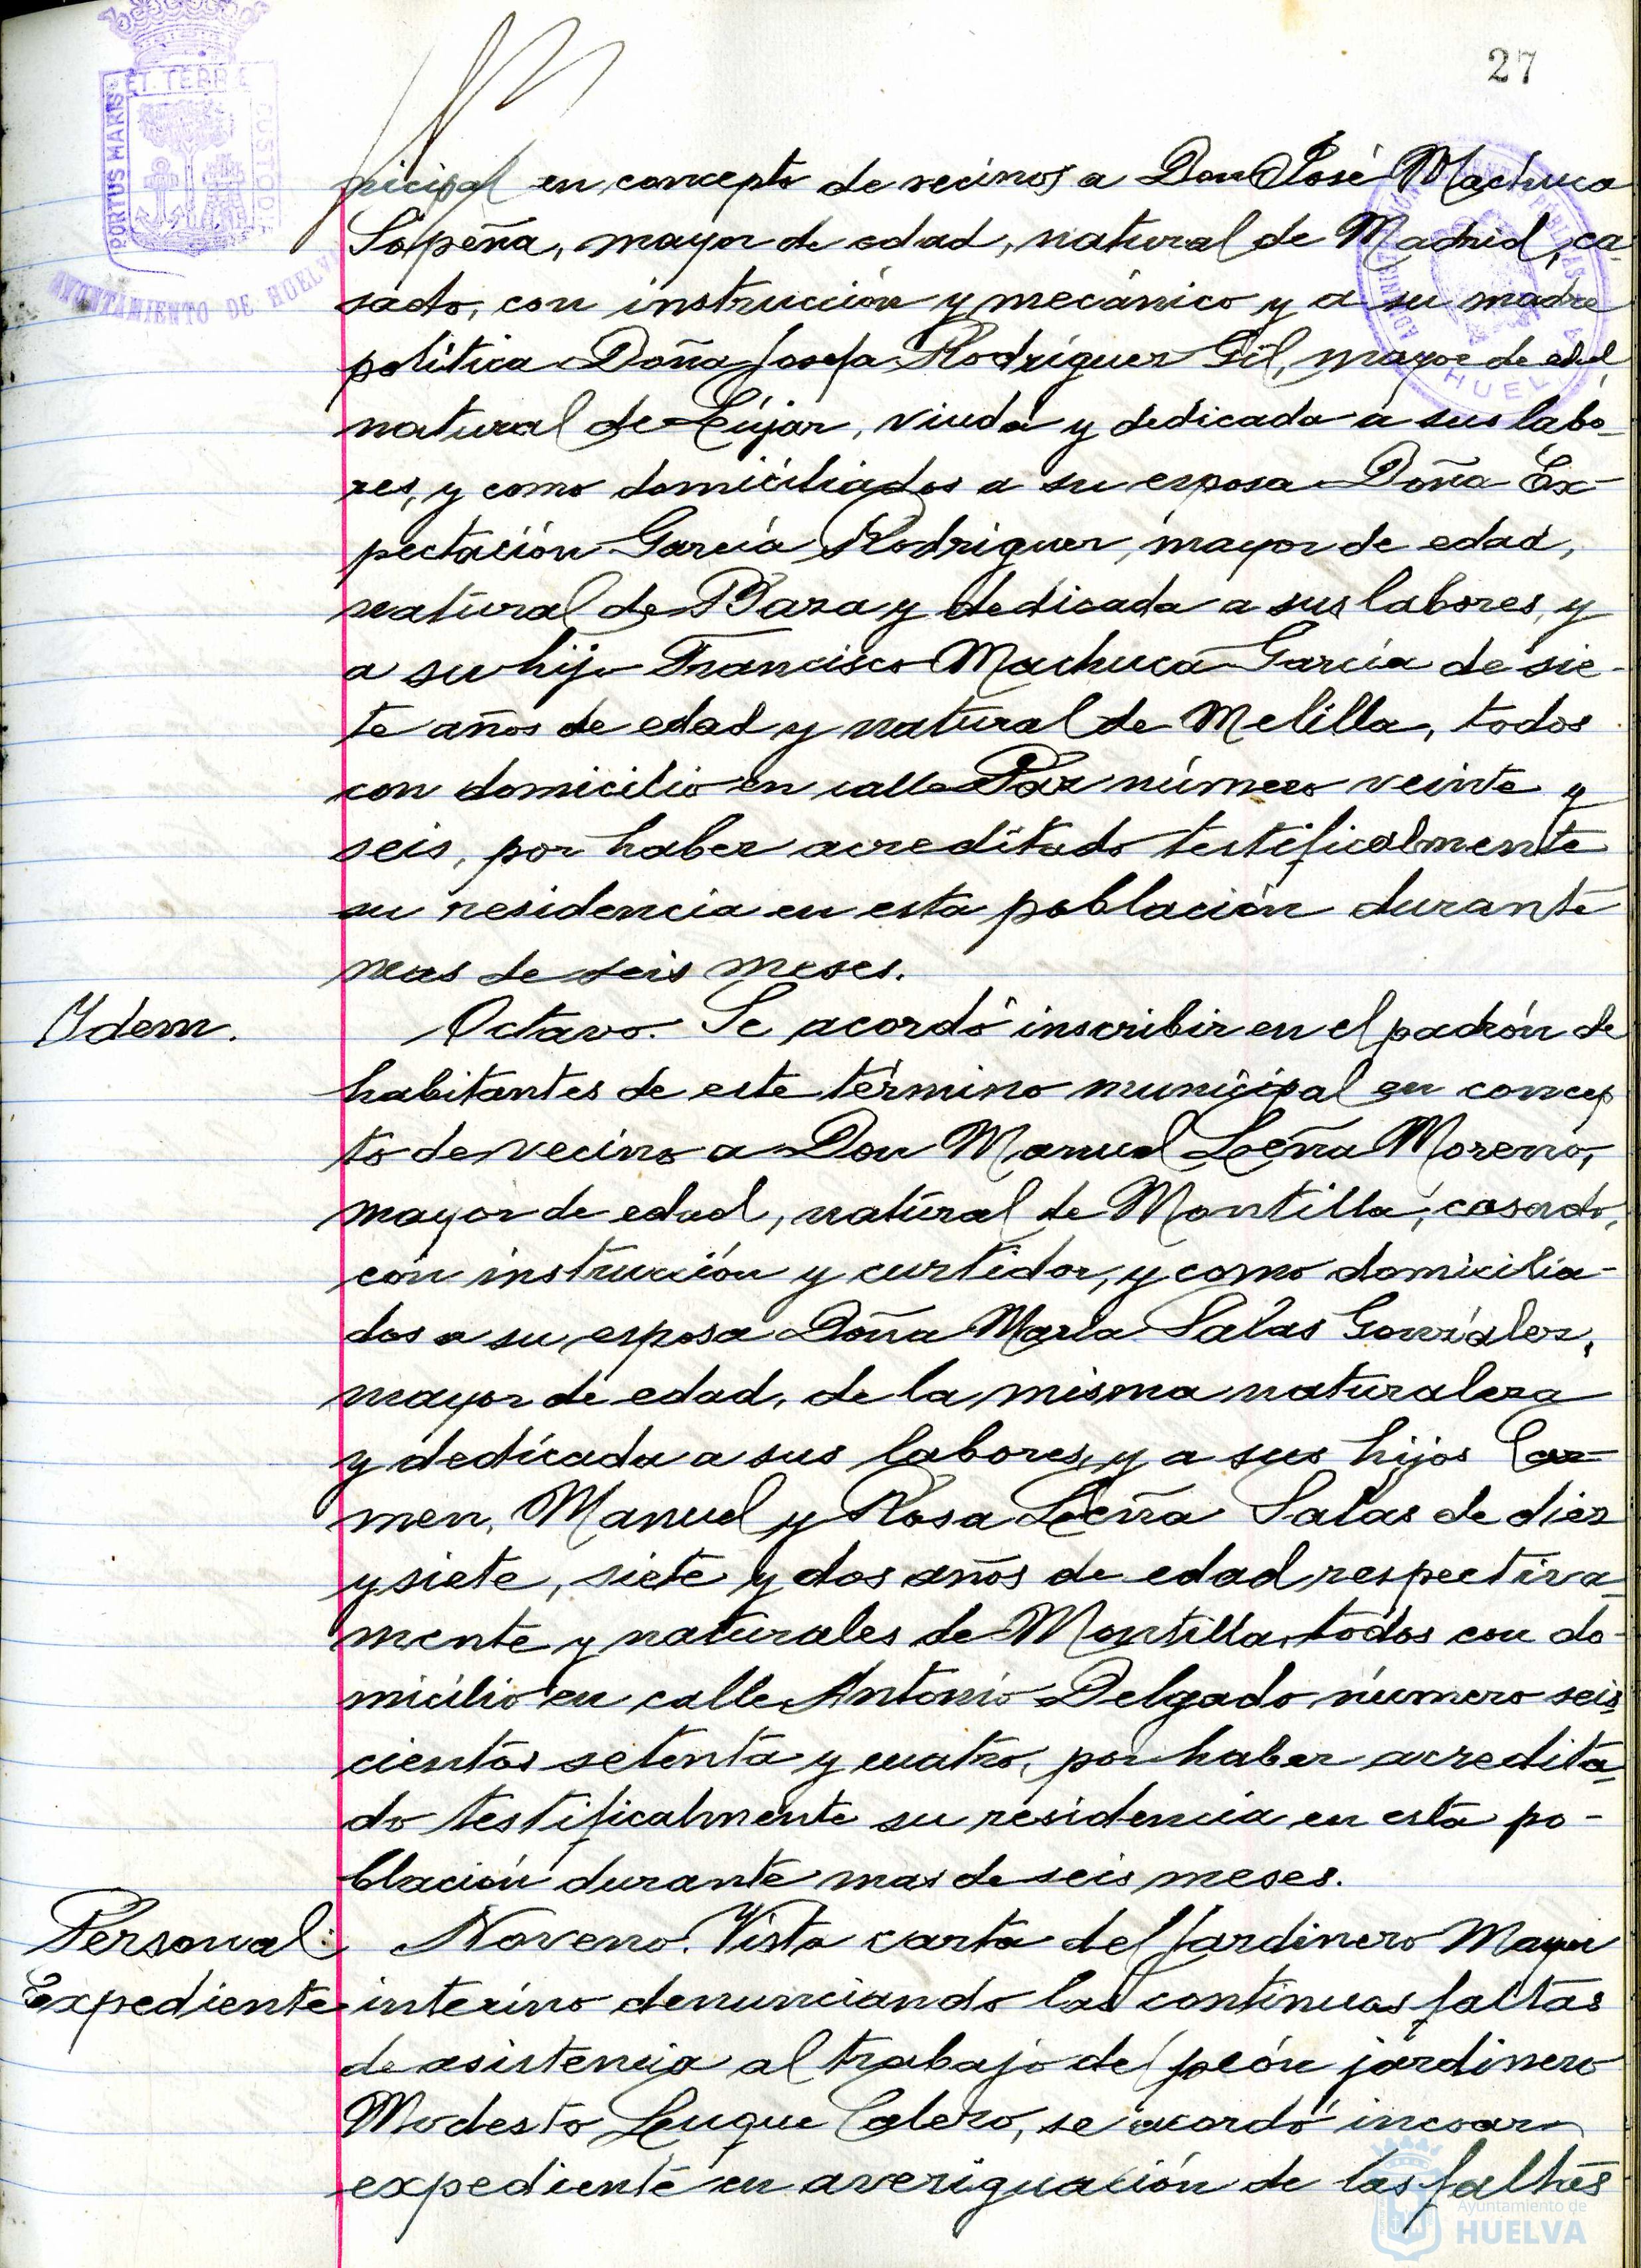 27
PORTUS MARIS
ET TERRE
CUSTODIA
AYUNTAMIENTO DE HUELVA
HUELVA
nicipal en concepto de vecinos a Don José Machuca
Sapeña, mayor de edad, natural de Madrid, ca-
sado, con instrucción y mecánico y a su madre
política Doña Josefa Rodríguez Gil, mayor de edad,
natural de Lújar, viuda y dedicada a sus labo-
res, y como domiciliados a su esposa Doña Ex-
pectación García Rodríguez, mayor de edad,
natural de Baza y dedicada a sus labores, y
a su hijo Francisco Machuca García de sie-
te años de edad y natural de Melilla, todos
con domicilio en calle Paz número veinte y
seis, por haber acreditado testificalmente
su residencia en esta población durante
mas de seis meses.
Ydem.
Octavo. Se acordó inscribir en el padrón de
habitantes de este término municipal en concep
to de vecino a Don Manuel Leña Moreno,
mayor de edad, natural de Montilla, casado,
con instrucción y curtidor, y como domicilia-
dos a su esposa Doña María Salas González,
mayor de edad, de la misma naturaleza
y dedicada a sus labores, y a sus hijos Car-
men, Manuel y Rosa Leña Salas de diez
y siete, siete y dos años de edad respectiva-
mente y naturales de Montilla, todos con do-
micilio en calle Antonio Delgado número seis
cientos setenta y cuatro, por haber acredita-
do testificalmente su residencia en esta po-
blación durante mas de seis meses.
Personal:
Expediente
Noveno. Vista carta del Jardinero Mayor
interino denunciando las continuas faltas
de asistencia al trabajo del peón jardinero
Modesto Luque Calero, se acordó incoar
expediente en averiguación de las faltas
Ayuntamiento de
HUELVA